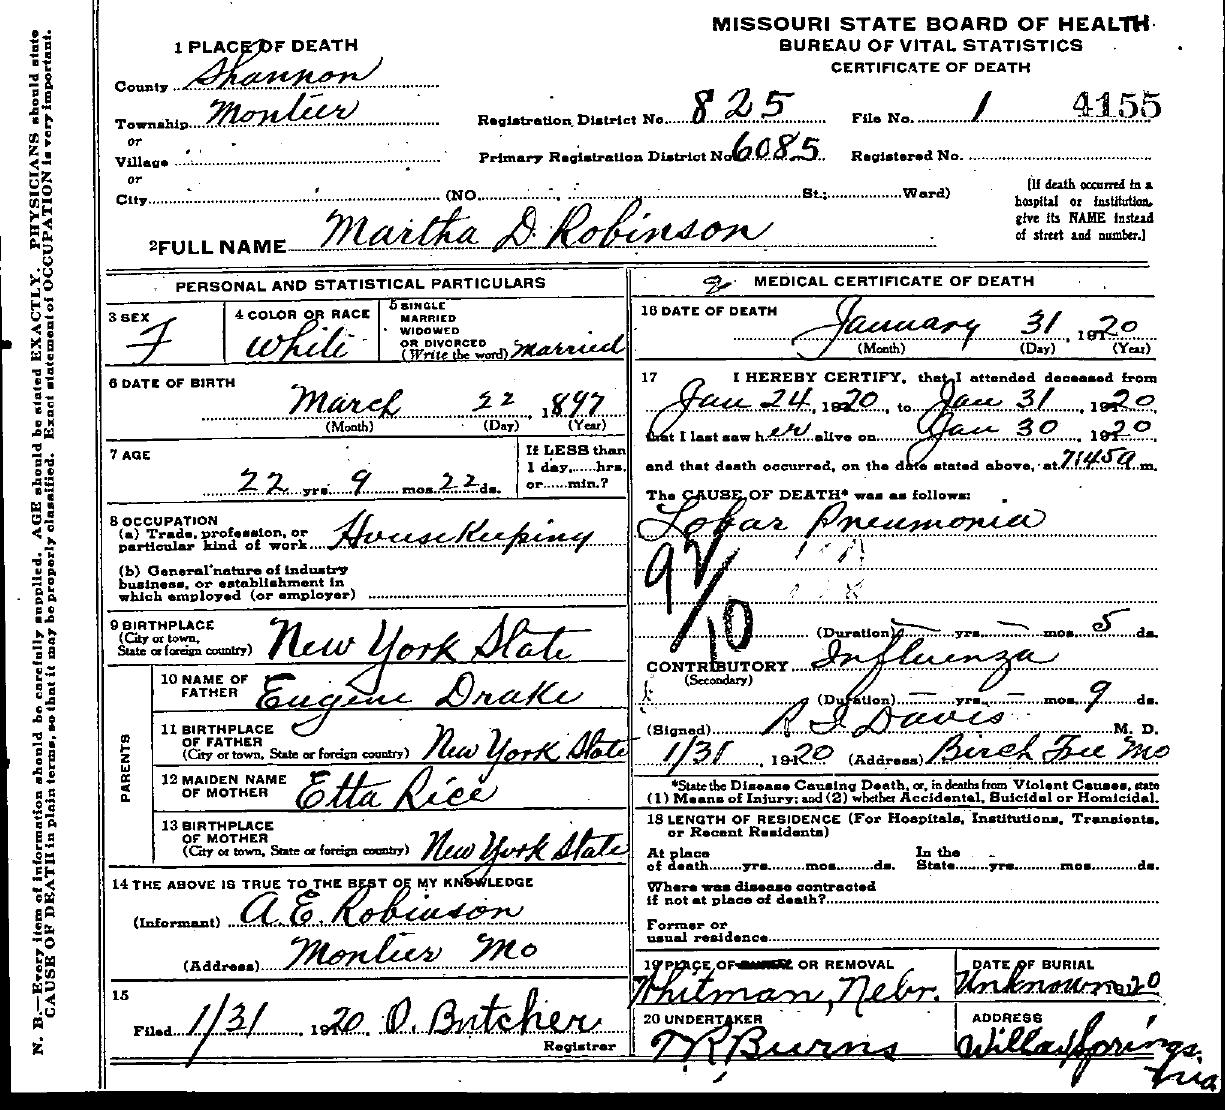 MISSOURI STATE BOARD OF HEALTH
BUREAU OF VITAL STATISTICS
CERTIFICATE OF DEATH
1 PLACE OF DEATH
County Shannon
Township Montier
or
Village
or
City (NO. St.; Ward)
Registration District No. 825 File No. 1 4155
Primary Registration District No. 6085 Registered No.
[If death occurred in a
hospital or institution,
give its NAME instead
of street and number.]
2 FULL NAME Martha D. Robinson
PERSONAL AND STATISTICAL PARTICULARS
3 SEX
F
4 COLOR OR RACE
White
5 SINGLE
MARRIED
WIDOWED
OR DIVORCED
(Write the word) Married
6 DATE OF BIRTH
March 22, 1897
(Month) (Day) (Year)
7 AGE
22 yrs. 9 mos. 22 ds.
If LESS than
1 day,.....hrs.
or.....min.?
8 OCCUPATION
(a) Trade, profession, or
particular kind of work House Keeping
(b) General nature of industry
business, or establishment in
which employed (or employer)
9 BIRTHPLACE
(City or town,
State or foreign country) New York State
PARENTS
10 NAME OF
FATHER Eugene Drake
11 BIRTHPLACE
OF FATHER
(City or town, State or foreign country) New York State
12 MAIDEN NAME
OF MOTHER Etta Rice
13 BIRTHPLACE
OF MOTHER
(City or town, State or foreign country) New York State
14 THE ABOVE IS TRUE TO THE BEST OF MY KNOWLEDGE
(Informant) A.E. Robinson
(Address) Montier Mo
15
Filed 1/31 1920 O. Butcher
Registrar
MEDICAL CERTIFICATE OF DEATH
16 DATE OF DEATH
January 31, 1920
(Month) (Day) (Year)
17 I HEREBY CERTIFY, that I attended deceased from
Jan 24, 1920, to Jan 31, 1920
that I last saw her alive on Jan 30, 1920
and that death occurred, on the date stated above, at m.
The CAUSE OF DEATH* was as follows:
Lobar Pneumonia
92
10
(Duration) — yrs. — mos. 5 ds.
CONTRIBUTORY Influenza
(Secondary)
(Duration) — yrs. — mos. 9 ds.
(Signed) Davis M. D.
1/31, 1920 (Address) Birch Tree Mo
*State the Disease Causing Death, or, in deaths from Violent Causes, state
(1) Means of Injury; and (2) whether Accidental, Suicidal or Homicidal.
18 LENGTH OF RESIDENCE (For Hospitals, Institutions, Transients,
or Recent Residents)
At place
of death......yrs......mos......ds.
In the
State......yrs......mos......ds.
Where was disease contracted
if not at place of death?
Former or
usual residence
19 PLACE OF OR REMOVAL
Whitman, Nebr.
DATE OF BURIAL
Unknown 1920
20 UNDERTAKER
Burns
ADDRESS
Willow Springs
N. B.—Every item of information should be carefully supplied. AGE should be stated EXACTLY. PHYSICIANS should state
CAUSE OF DEATH in plain terms, so that it may be properly classified. Exact statement of OCCUPATION is very important.